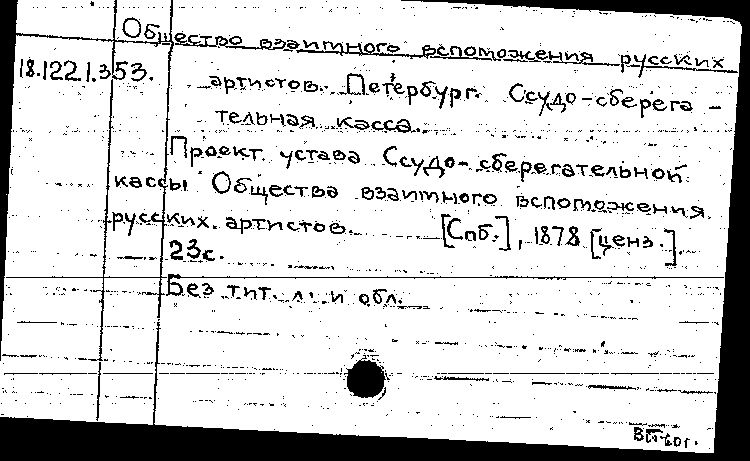 Общество взаимного вспоможения русских
18.122.1.353.
артистов. Петербург. Ссудо-сберега-
тельная касса.
Проект устава Ссудо-сберегательной
кассы Общества взаимного вспоможения
русских артистов. [Спб.], 1878 [ценз.].
23с.
Без тит. л. и обл.